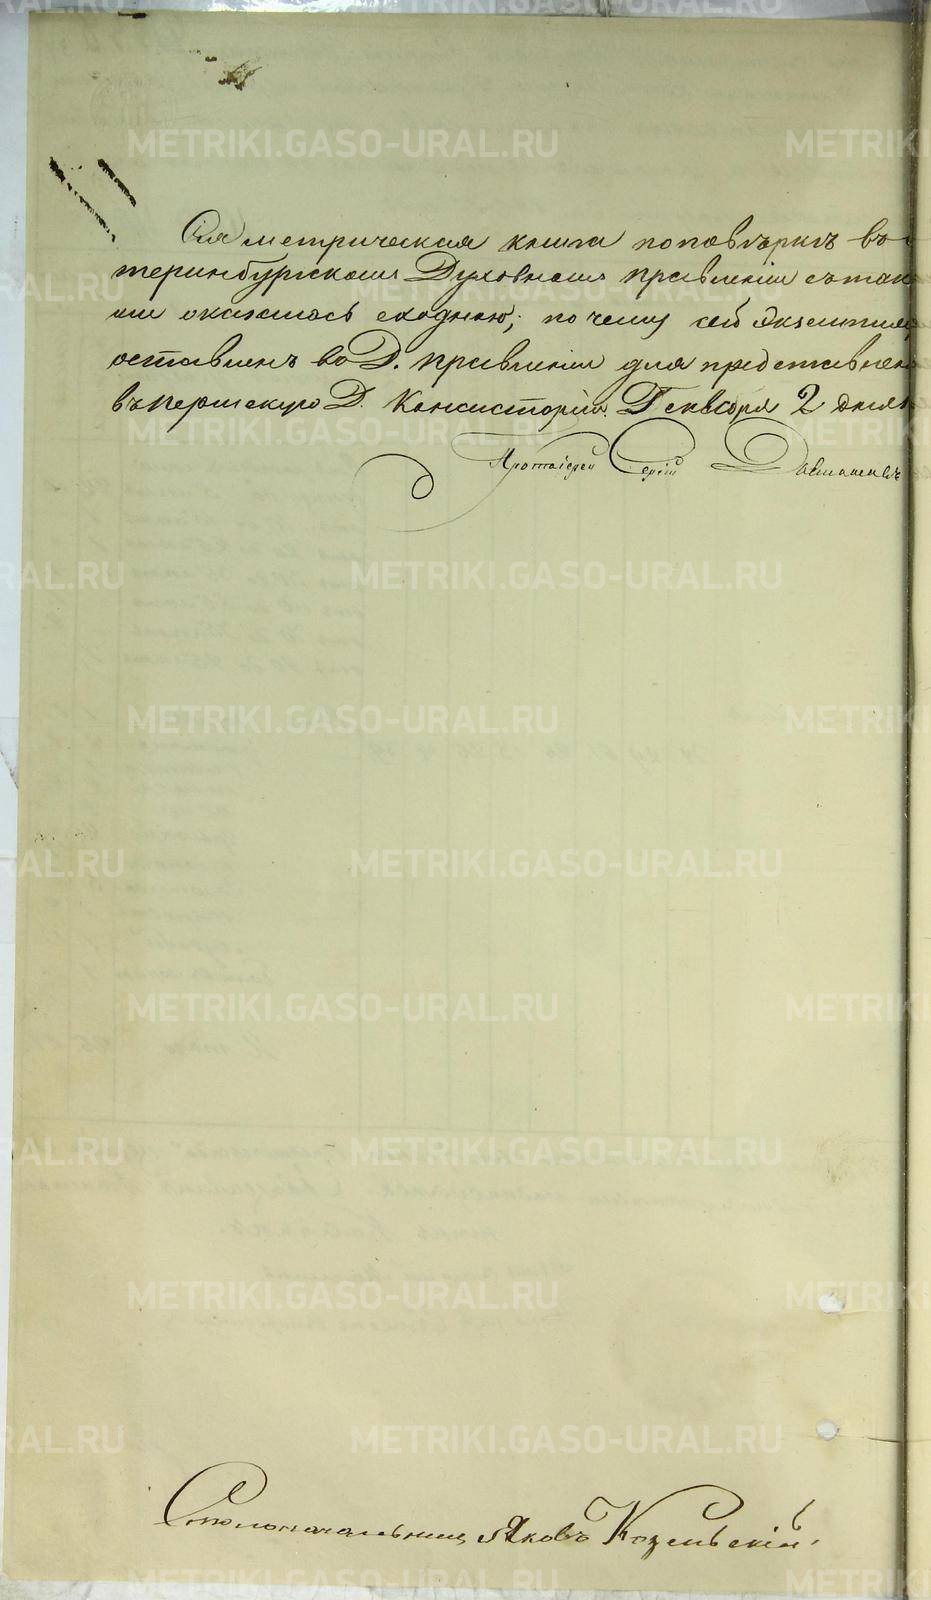 Сія метрическая книга по повѣркѣ въ
теринбургскомъ Духовномъ правленіи съ так
ми оказалась сходною; почему сей экземпляр
оставленъ въ Д. правленіи для представлен
въ пермскую Д. Консисторію. Генваря 2 дня
Протоіерей Сергій
Столоначальникъ Яковъ Козельскій.
METRIKI.GASO-URAL.RU